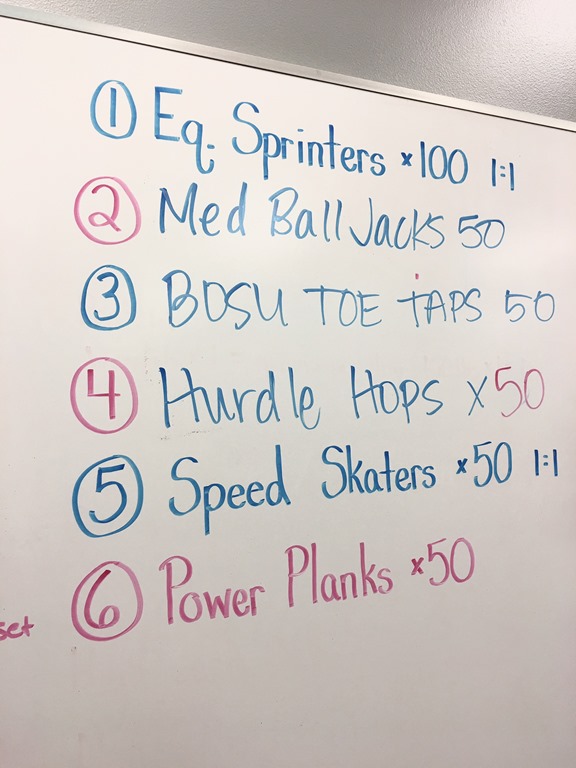 1 Eq. Sprinters x100 1:1
2 Med Ball Jacks 50
3 BOSU TOE TAPS 50
4 Hurdle Hops x50
5 Speed Skaters x50 1:1
6 Power Planks x50
set